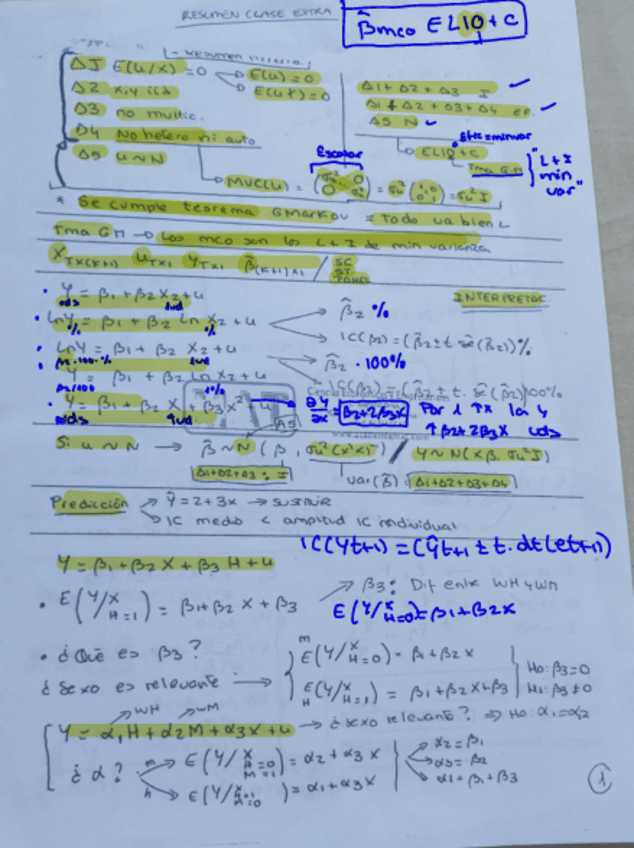 RESUMEN CLASE EXTRA
β̂mco ELIO + C
- Resumen
Δ1 E(u/x) = 0 → E(u) = 0
→ E(uX) = 0
Δ2 x,y iid
Δ3 no multic.
Δ4 No hetero ni auto
Δ5 u ~ N
Δ1 + Δ2 + Δ3 I ✓
Δ1 + Δ2 + Δ3 + Δ4 EF. ✓
Δ5 N ✓
ELIO + C
Tma GM
"L + I min var"
Escalar
MVC(u) = (σu² 0 0 σu²) = σu² (1 0 0 1) = σu² I
* Se cumple teorema GMarkov = Todo va bien
Tma GM → Los mco son los L + I de min varianza
X Tx(K+1) u Tx1 Y Tx1 β̂ (K+1)x1 / SC ST PANEL
INTERPRETAC.
• Y = β1 + β2 X2 + u
uds 1ud
• LnY = β1 + β2 Ln X2 + u → β̂2 %
% 1%
→ IC(β2) = (β̂2 ± t ŝe(β̂2))%
• LnY = β1 + β2 X2 + u → β̂2 · 100%
β2 · 100 · % 1ud
→ IC(β2) = (β̂2 ± t · ŝe(β̂2))100%
Y = β1 + β2 Ln X2 + u
β2/100 1%
• Y = β1 + β2 X + β3 X² + u → ∂Y/∂X = β2 + 2β3X Por 1 ↑X la Y ↑ β2 + 2β3X uds
uds 1ud
Si u ~ N → β̂ ~ N(β, σu²(X'X)⁻¹) / Y ~ N(Xβ, σu² I)
Δ1 + Δ2 + Δ3 : I
var(β̂) : Δ1 + Δ2 + Δ3 + Δ4
Predicción → Ŷ = 2 + 3x → SUSTITUIR
→ IC medio < amplitud IC individual
IC(Yt+1) = (Ŷt+1 ± t · dt(et+1))
Y = β1 + β2 X + β3 H + u
• E(Y/X H=1) = β1 + β2 X + β3 → β3: Dif entre WH y WM
E(Y/X H=0) = β1 + β2X
• ¿Qué es β3?
¿Sexo es relevante →
m E(Y/X H=0) = β1 + β2 X
H E(Y/X H=1) = β1 + β2X + β3
H0: β3 = 0
H1: β3 ≠ 0
WH WM
Y = α1H + α2M + α3X + u → ¿sexo relevante? ⇒ H0: α1 = α2
¿α? m→ E(Y/X H=0 M=1) = α2 + α3 X
h→ E(Y/X H=1 M=0) = α1 + α3X
α2 = β1
α3 = β2
α1 = β1 + β3
1